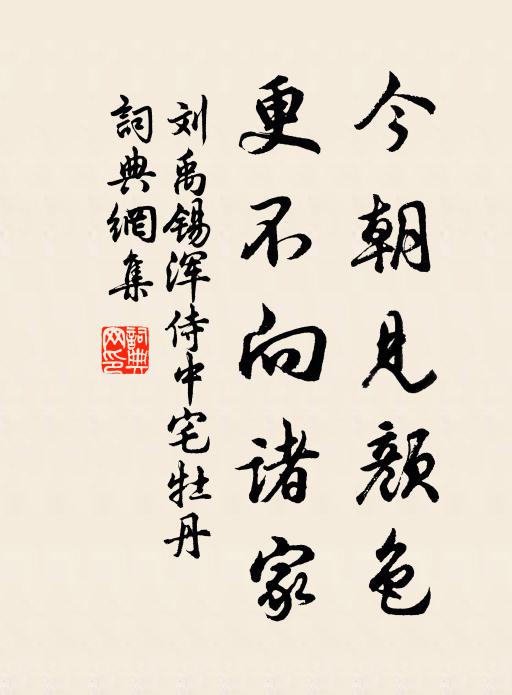 今朝见颜色
更不向诸家
刘禹锡浑侍中宅牡丹
詞典網集
詞典
网印